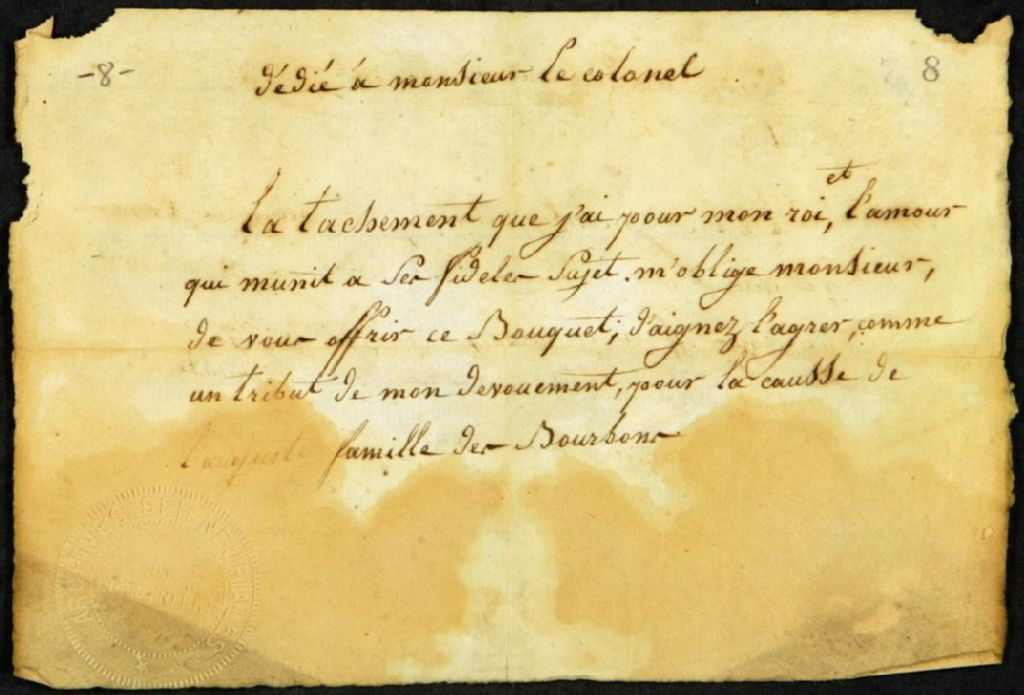 -8-
8
dédié à monsieur le colonel
la tachement que j'ai pour mon roi, et l'amour
qui munit a ses fideles sujet. m'oblige monsieur,
de vous offrir ce Bouquet; d'aignez l'agrer, comme
un tribut de mon devouement, pour la causse de
l'auguste famille des Bourbons
ARCHIVES SEIGNEURIALES
DE